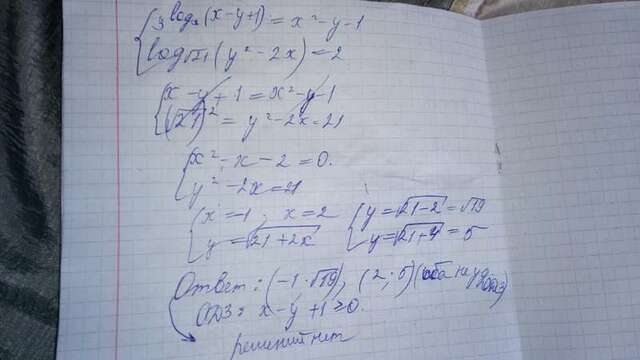 3^log₃(x-y+1) = x²-y-1
log√21(y²-2x) = 2
x-y+1 = x²-y-1
(√21)² = y²-2x = 21
x²-x-2=0.
y²-2x=21
x=-1; x=2 y=√21-2=√19
y=√21+2x y=√21+4=5
Ответ: (-1; √19), (2; 5) (оба не уд ОДЗ)
ОДЗ: x-y+1≥0.
решений нет